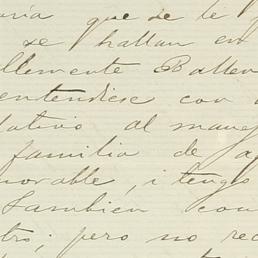 que se le
se hallan en
Ballen
entendiese con
lativo al mane
familia de a
orable, i tengo
Tambien con
tro; pero no rec